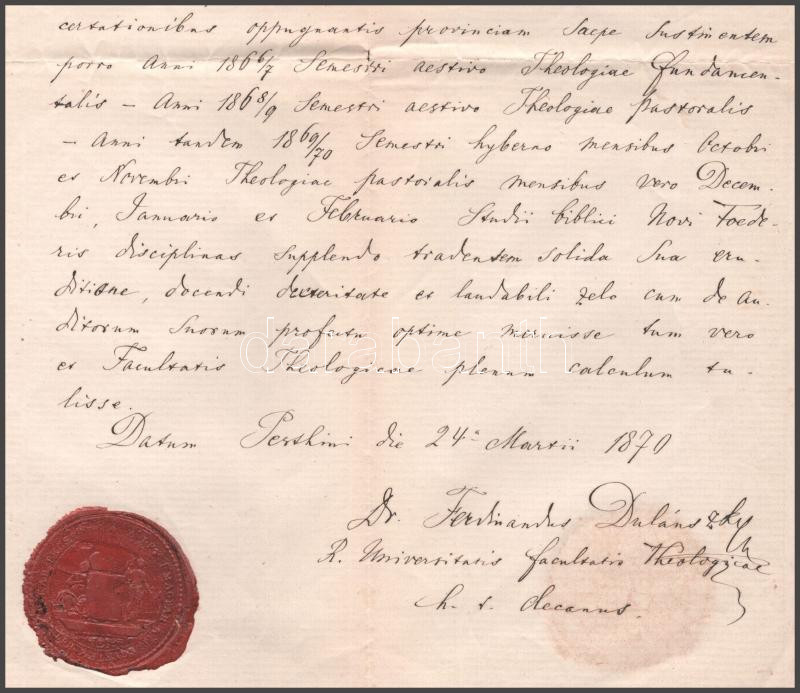 certationibus oppugnantis provinciam saepe sustinentem
porro Anni 1866/7 Semestri aestivo Theologiae fundamen-
talis – Anni 1868/9 Semestri aestivo Theologiae pastoralis
– Anni tandem 1869/70 Semestri hyberno mensibus Octobri
et Novembri Theologiae pastoralis mensibus vero Decem-
bri, Januario et Februario Studii biblici Novi Foede-
ris disciplinas supplendo tradentem solida sua eru-
ditione, docendi dexteritate et laudabili zelo cum de Au-
ditorum suorum profectu optime meruisse tum vero
et Facultatis Theologicae plenum calculum tu-
lisse.
Datum Pesthini die 24a Martii 1870
Dr. Ferdinandus Dulánszky
R. Universitatis facultatis Theologicae
h. t. decanus.
darabanth